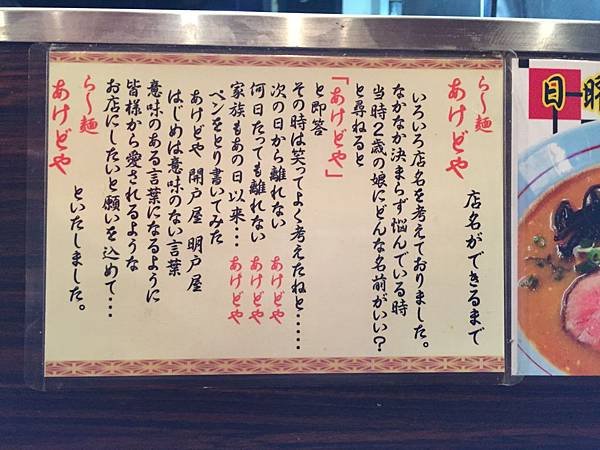 らー麺
あけどや
店名ができるまで
いろいろ店名を考えておりました。
なかなか決まらず悩んでいる時
当時2歳の娘にどんな名前がいい?
と尋ねると
「あけどや」
と即答
その時は笑ってよく考えたねと・・・・・
次の日から離れない あけどや
何日たっても離れない あけどや
家族もあの日以来・・・ あけどや
ペンをとり書いてみた
あけどや 開戸屋 明戸屋
はじめは意味のない言葉
意味のある言葉になるように
皆様から愛されるような
お店にしたいと願いを込めて・・・
らー麺
あけどや
といたしました。
日曜